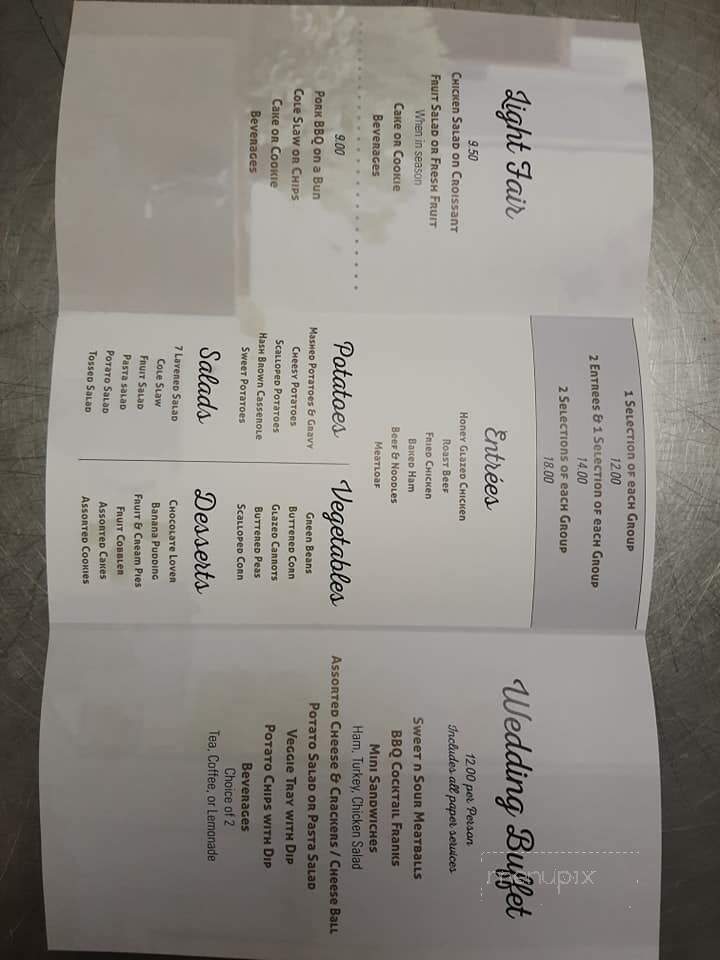 Light Fair
9.50
Chicken Salad on Croissant
Fruit Salad or Fresh Fruit
When in season
Cake or Cookie
Beverages
9.00
Pork BBQ on a Bun
Cole Slaw or Chips
Cake or Cookie
Beverages
1 Selection of each Group
12.00
2 Entrees & 1 Selection of each Group
14.00
2 Selections of each Group
18.00
Entrées
Honey Glazed Chicken
Roast Beef
Fried Chicken
Baked Ham
Beef & Noodles
Meatloaf
Potatoes
Mashed Potatoes & Gravy
Cheesy Potatoes
Scalloped Potatoes
Hash Brown Casserole
Sweet Potatoes
Vegetables
Green Beans
Buttered Corn
Glazed Carrots
Buttered Peas
Scalloped Corn
Salads
7 Layered Salad
Cole Slaw
Fruit Salad
Pasta Salad
Potato Salad
Tossed Salad
Desserts
Chocolate Lover
Banana Pudding
Fruit & Cream Pies
Fruit Cobbler
Assorted Cakes
Assorted Cookies
Wedding Buffet
12.00 per Person
Includes all paper services
Sweet n Sour Meatballs
BBQ Cocktail Franks
Mini Sandwiches
Ham, Turkey, Chicken Salad
Assorted Cheese & Crackers / Cheese Ball
Potato Salad or Pasta Salad
Veggie Tray with Dip
Potato Chips with Dip
Beverages
Choice of 2
Tea, Coffee, or Lemonade
menupix